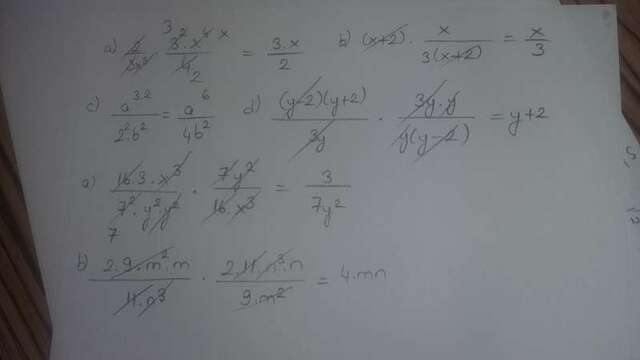 a) 2/3x³ · 3² · x⁴/4 = 3·x/2 b) (x+2) · x/3(x+2) = x/3
c) a³·²/2²·b² = a⁶/4b² d) (y-2)(y+2)/3y · 3y·y/y(y-2) = y+2
a) 16·3·x³/7²·y²·y² · 7y²/16·x³ = 3/7y²
b) 2·9·m²·m/11·n³ · 2·11·n³·n/9·m² = 4·mn